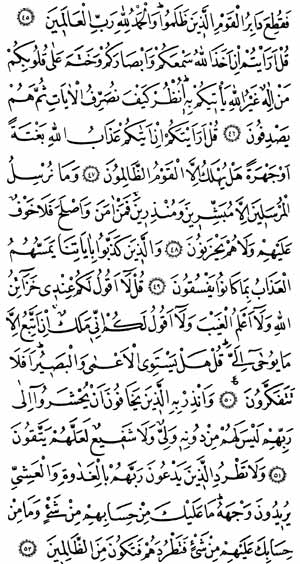 فَقُطِعَ دَابِرُ الْقَوْمِ الَّذِينَ ظَلَمُوا وَالْحَمْدُ لِلَّهِ رَبِّ الْعَالَمِينَ ﴿٤٥﴾
قُلْ أَرَأَيْتُمْ إِنْ أَخَذَ اللَّهُ سَمْعَكُمْ وَأَبْصَارَكُمْ وَخَتَمَ عَلَى قُلُوبِكُمْ
مَنْ إِلَهٌ غَيْرُ اللَّهِ يَأْتِيكُمْ بِهِ انْظُرْ كَيْفَ نُصَرِّفُ الْآيَاتِ ثُمَّ هُمْ
يَصْدِفُونَ ﴿٤٦﴾ قُلْ أَرَأَيْتَكُمْ إِنْ أَتَاكُمْ عَذَابُ اللَّهِ بَغْتَةً
أَوْ جَهْرَةً هَلْ يُهْلَكُ إِلَّا الْقَوْمُ الظَّالِمُونَ ﴿٤٧﴾ وَمَا نُرْسِلُ
الْمُرْسَلِينَ إِلَّا مُبَشِّرِينَ وَمُنْذِرِينَ فَمَنْ آمَنَ وَأَصْلَحَ فَلَا خَوْفٌ
عَلَيْهِمْ وَلَا هُمْ يَحْزَنُونَ ﴿٤٨﴾ وَالَّذِينَ كَذَّبُوا بِآيَاتِنَا يَمَسُّهُمُ
الْعَذَابُ بِمَا كَانُوا يَفْسُقُونَ ﴿٤٩﴾ قُلْ لَا أَقُولُ لَكُمْ عِنْدِي خَزَائِنُ
اللَّهِ وَلَا أَعْلَمُ الْغَيْبَ وَلَا أَقُولُ لَكُمْ إِنِّي مَلَكٌ إِنْ أَتَّبِعُ إِلَّا
مَا يُوحَى إِلَيَّ قُلْ هَلْ يَسْتَوِي الْأَعْمَى وَالْبَصِيرُ أَفَلَا
تَتَفَكَّرُونَ ﴿٥٠﴾ وَأَنْذِرْ بِهِ الَّذِينَ يَخَافُونَ أَنْ يُحْشَرُوا إِلَى
رَبِّهِمْ لَيْسَ لَهُمْ مِنْ دُونِهِ وَلِيٌّ وَلَا شَفِيعٌ لَعَلَّهُمْ يَتَّقُونَ
﴿٥١﴾ وَلَا تَطْرُدِ الَّذِينَ يَدْعُونَ رَبَّهُمْ بِالْغَدَاوةِ وَالْعَشِيِّ
يُرِيدُونَ وَجْهَهُ مَا عَلَيْكَ مِنْ حِسَابِهِمْ مِنْ شَيْءٍ وَمَا مِنْ
حِسَابِكَ عَلَيْهِمْ مِنْ شَيْءٍ فَتَطْرُدَهُمْ فَتَكُونَ مِنَ الظَّالِمِينَ ﴿٥٢﴾